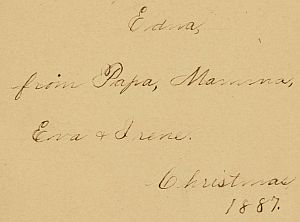 Edna,
from Papa, Mamma,
Eva & Irene.
Christmas
1887.